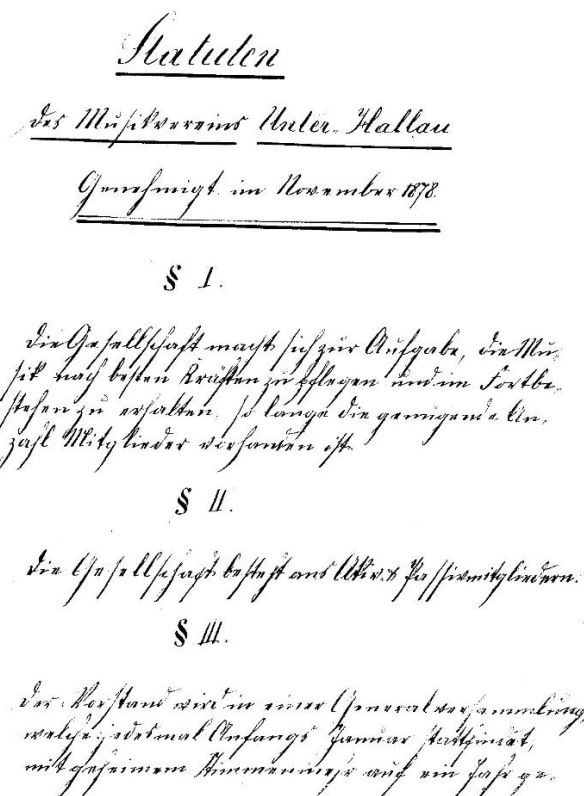 Statuten
des Musikvereins Unter-Hallau
Genehmigt im November 1878.
§ I.
Die Gesellschaft macht sich zur Aufgabe, die Mu-
sik nach besten Kräften zu pflegen und im Fortbe-
stehen zu erhalten, so lange die genügende An-
zahl Mitglieder vorhanden ist.
§ II.
Die Gesellschaft besteht aus Aktiv- & Passivmitgliedern.
§ III.
Der Vorstand wird in einer Generalversammlung,
welche jedesmal Anfangs Januar stattfindet,
mit geheimem Stimmenmehr auf ein Jahr ge-